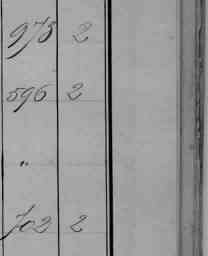 975 2
596 2
"
702 2